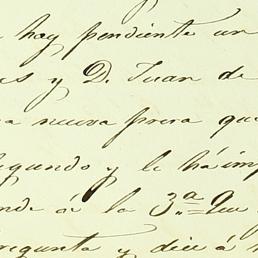 hay pendiente un
y D. Juan de
nueva prera que
segundo y le ha imp
de á la 3.ª Que
pregunta y dice á